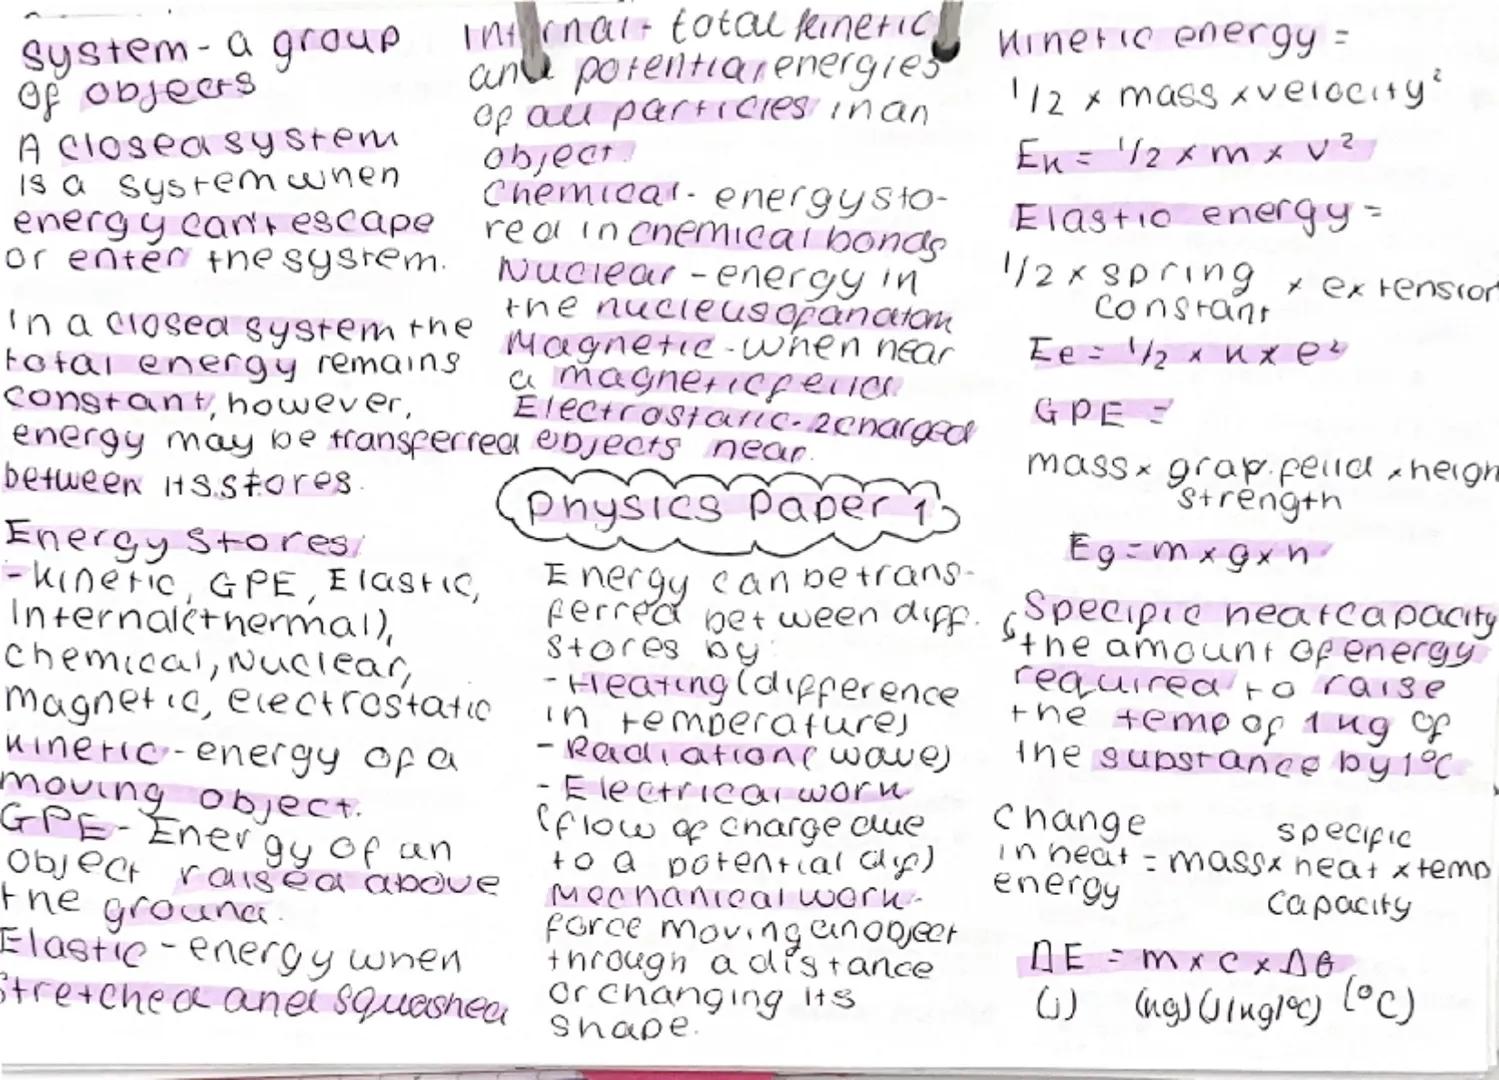 system - a group
of objects
A closed system
is a system when
energy can't escape
or enter the system.
In a closed system the
total energy remains
constant, however,
energy may be transferred
between its stores.
Energy Stores:
- kinetic, GPE, Elastic,
Internal (thermal),
chemical, Nuclear,
magnetic, electrostatic
kinetic - energy of a
moving object.
GPE - Energy of an
object raised above
the ground.
Elastic - energy when
stretched and squashed
Internal - total kinetic
and potential energies
of all particles in an
object.
Chemical - energy sto-
red in chemical bonds
Nuclear - energy in
the nucleus of an atom
Magnetic - when near
a magnetic feild
Electrostatic - 2 charged
objects near.
Physics Paper 1
Energy can be trans-
ferred between diff.
stores by:
- Heating (difference
in temperature)
- Radiation (wave)
- Electrical work
(flow of charge due
to a potential dif)
Mechanical work -
force moving an object
through a distance
or changing its
shape.
Kinetic energy =
1/2 x mass x velocity²
Ek = 1/2 x m x v²
Elastic energy =
1/2 x spring x extension
constant
Ee = 1/2 x k x e²
GPE =
mass x grav. feild x heigh
strength
Eg = m x g x h
Specific heat capacity
↳ the amount of energy
required to raise
the temp of 1 kg of
the substance by 1°C
change specific
in heat = mass x heat x temp
energy capacity
ΔE = m x c x Δθ
(J) (kg) (J/kg/°C) (°C)